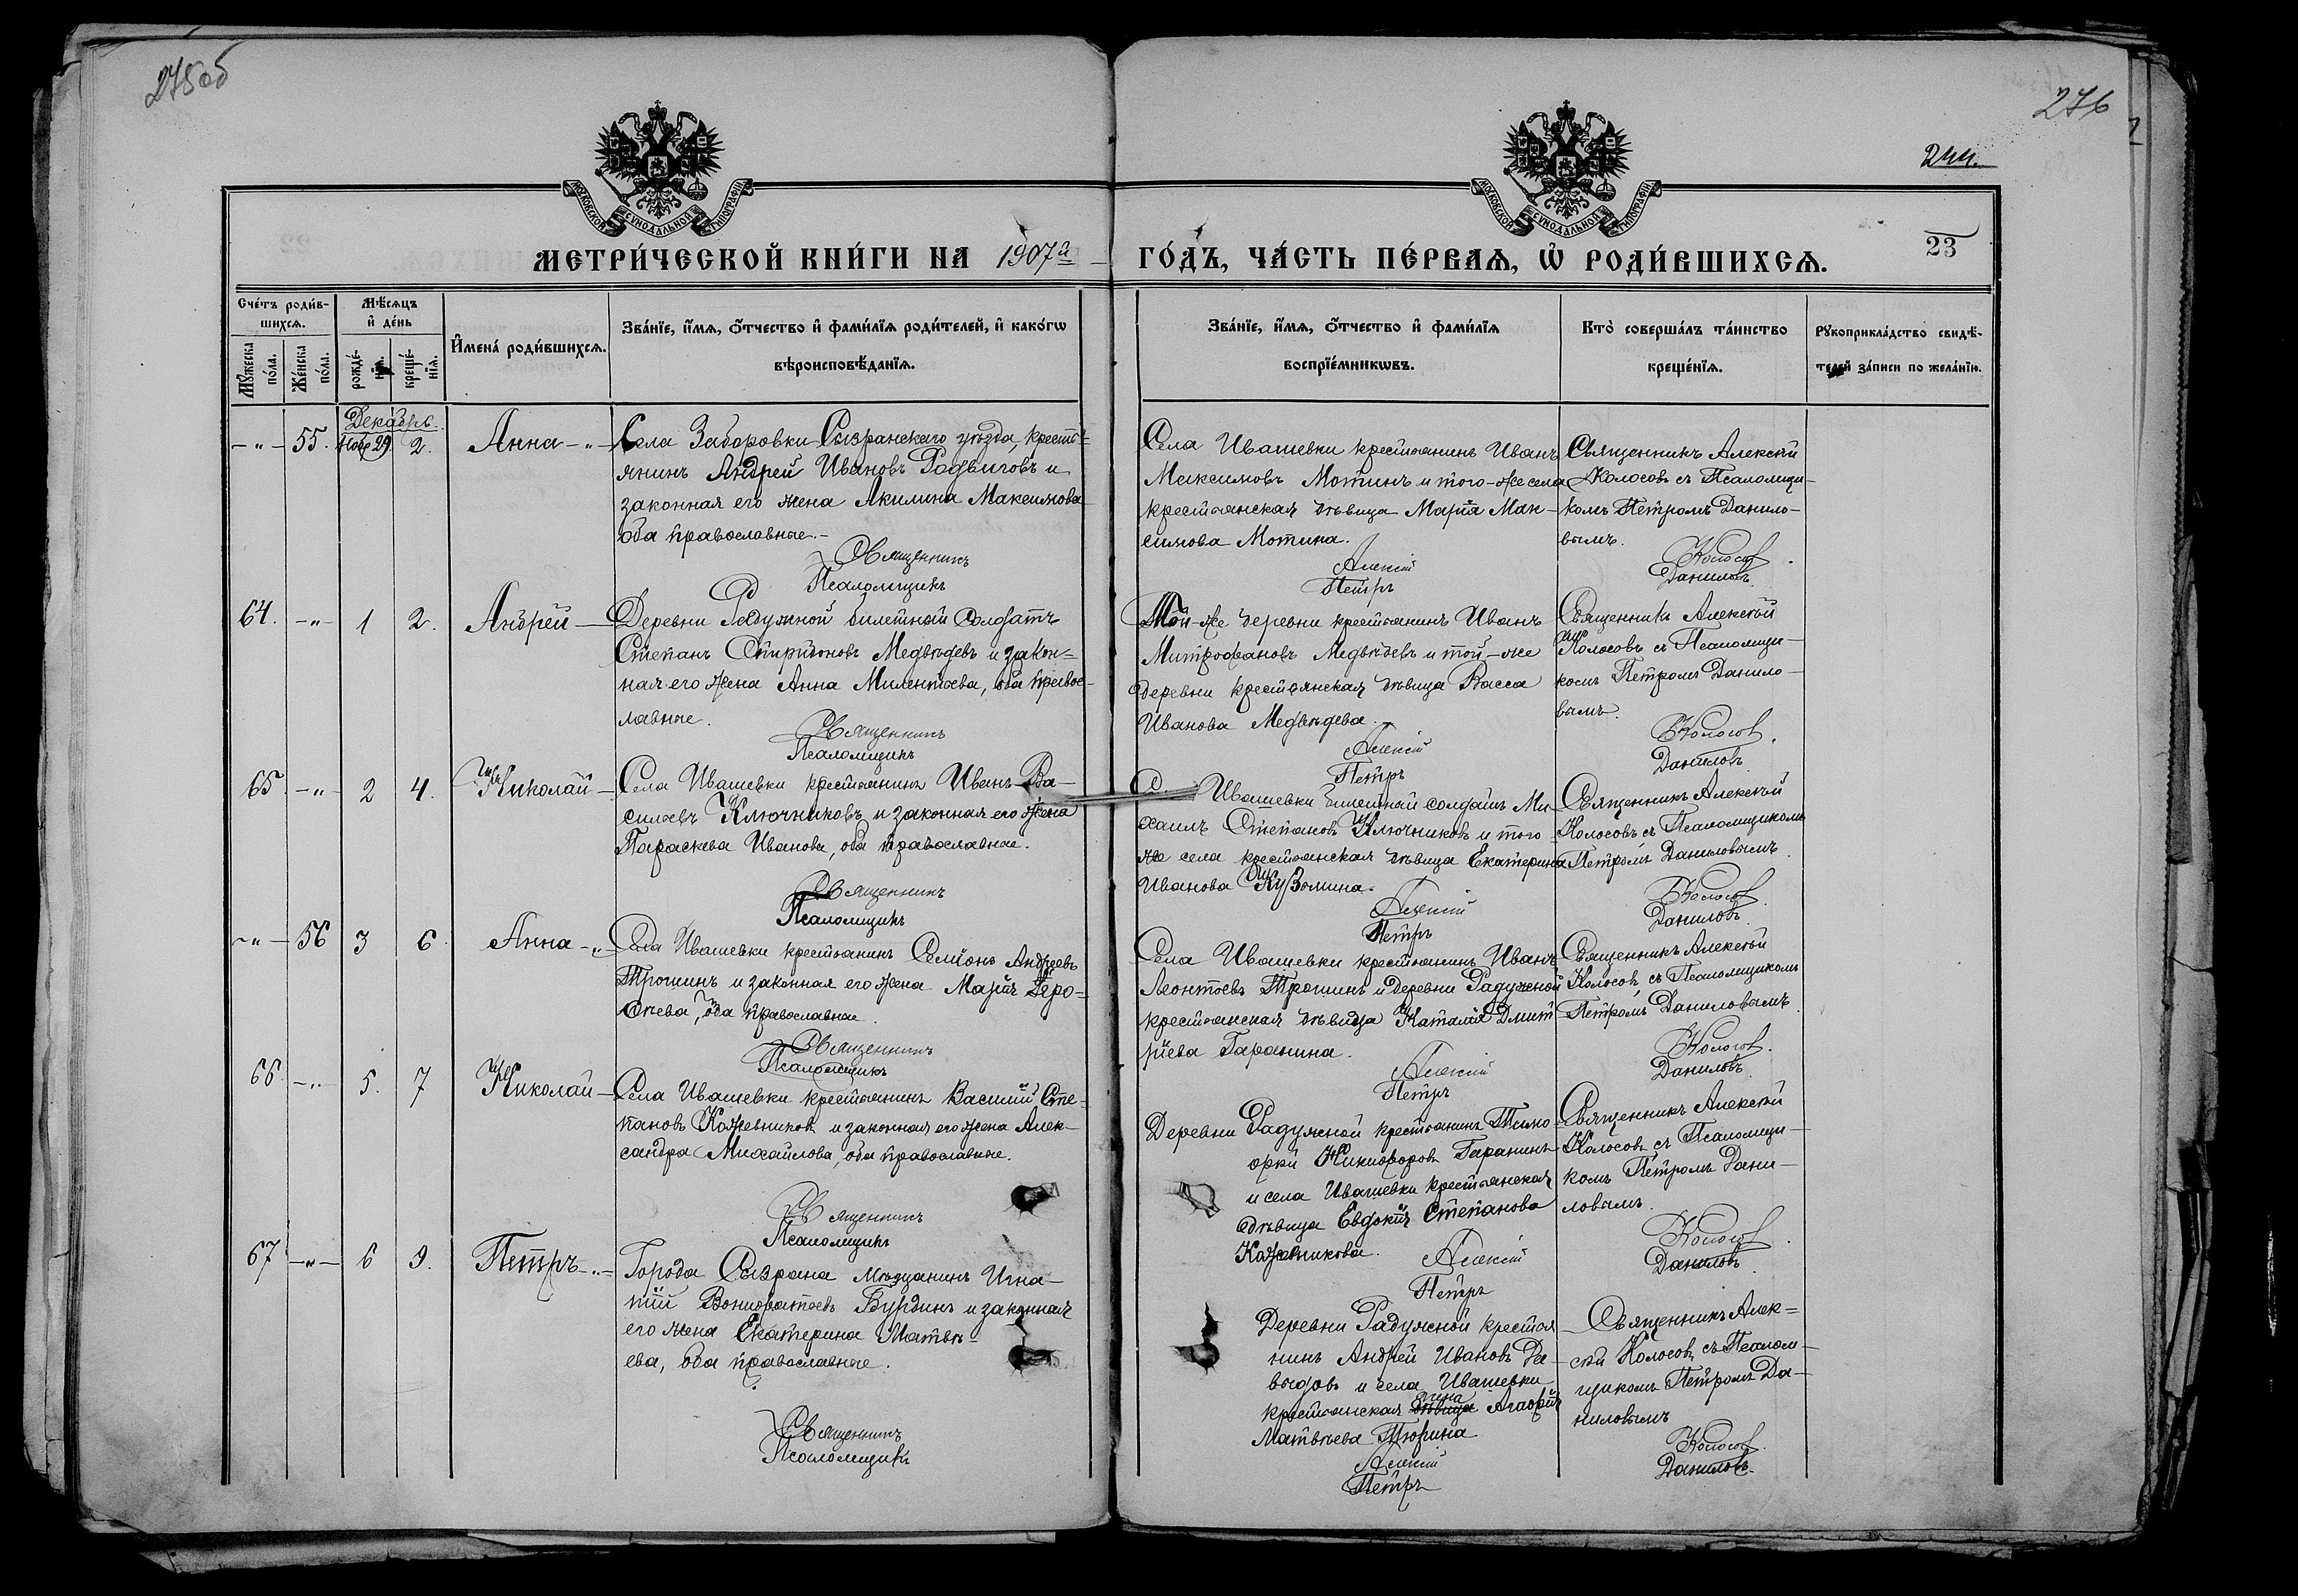 275об
276
244.
МОСКОВСКОЙ СѴНОДАЛЬНОЙ ТИПОГРАФІИ
МОСКОВСКОЙ СѴНОДАЛЬНОЙ ТИПОГРАФІИ
МЕТРИ́ЧЕСКОЙ КНИ́ГИ НА 1907й
ГО́ДЪ, ЧА́СТЬ ПЕ́РВАѦ, Ѡ҆ РОДИ́ВШИХСѦ.
23
Сче́тъ роди́в-
шихсѧ.
Мꙋ́жеска по́ла.
Же́нска по́ла.
Мѣ́сѧцъ
и҆ де́нь
рожде́-нїѧ.
креще́-нїѧ.
И҆мена̀ роди́вшихсѧ.
Зва́нїе, и҆́мѧ, ѻ҆́тчество и҆ фами́лїѧ роди́телей, и҆ како́гѡ
вѣроисповѣ́данїѧ.
Зва́нїе, и҆́мѧ, ѻ҆́тчество и҆ фами́лїѧ
воспрїе́мникѡвъ.
Кто̀ соверша́лъ та́инство
креще́нїѧ.
Рꙋкоприкла́дство свидѣ́-
телей за́писи по жела́нїю.
Декабрь.
-„- 55. Нояб 29. 2. Анна-„-
Села Заборовки Сызранскаго уѣзда, кресть-
янинъ Андрей Ивановъ Радвиговъ и
законная его жена Акилина Максимова
оба православные.-
Священникъ
Псаломщикъ
Села Ивашевки крестьянинъ Иванъ
Максимовъ Мотинъ и того-же села
крестьянская дѣвица Марія Мак-
симова Мотина.
Алексій
Петръ
Священникъ Алексѣй
Колосовъ съ Псаломщи-
комъ Петромъ Данило-
вымъ.
Колосовъ.
Даниловъ.
64. -„- 1 2. Андрей-
Деревни Радужной билетный Солдатъ
Степанъ Спиридоновъ Медвѣдевъ и закон=
ная его жена Анна Милентьева, оба правос-
лавные.
Священникъ
Псаломщикъ
Той-же деревни крестьянинъ Иванъ
Митрофановъ Медвѣдевъ и той-же
деревни крестьянская дѣвица Васса
Иванова Медвѣдева.
Алексій
Петръ
Священникъ Алексѣй
Колосовъ съ Псаломщи-
комъ Петромъ Данило-
вымъ.
Колосовъ.
Даниловъ.
65. -„- 2 4. Николай-
Села Ивашевки крестьянинъ Иванъ Ва-
сильевъ Ключниковъ и законная его жена
Параскева Иванова, оба православные.
Священникъ
Псаломщикъ
С. Ивашевки билетный солдатъ Ми-
хаилъ Степановъ Ключниковъ и того-
же села крестьянская дѣвица Екатерина
Иванова Кузьмина.
Алексій
Петръ
Священникъ Алексѣй
Колосовъ съ Псаломщикомъ
Петромъ Даниловымъ.
Колосовъ.
Даниловъ.
-„- 56 3 6. Анна-„-
Села Ивашевки крестьянинъ Семіонъ Андреевъ
Трошинъ и законная его жена Марія Деро-
ѳеева, оба православные.
Священникъ
Псаломщикъ
Села Ивашевки крестьянинъ Иванъ
Леонтьевъ Трошинъ и деревни Радужной
крестьянская дѣвица Наталія Дмит
ріева Гаранина.
Алексій
Петръ
Священникъ Алексѣй
Колосовъ съ Псаломщикомъ
Петромъ Даниловымъ.
Колосовъ.
Даниловъ.
66. -„- 5. 7 Николай-
Села Ивашевки крестьянинъ Василій Сте-
пановъ Кожевниковъ и законная его жена Алек-
сандра Михайлова, оба православные.
Священникъ
Псаломщикъ
Деревни Радужной крестьянинъ Тимо-
ѳей Никифоровъ Гаранинъ
и села Ивашевки крестьянская
дѣвица Евдокія Степанова
Кожевникова.
Алексій
Петръ
Священникъ Алексѣй
Колосовъ съ Псаломщи-
комъ Петромъ Дани-
ловымъ.
Колосовъ.
Даниловъ.
67 -„- 6 9. Петръ-„-
Города Сызрана мѣщанинъ Игна-
тій Вонифатьевъ Бурдинъ и законная
его жена Екатерина Матвѣ-
ева, оба православные.
Священникъ
Псаломщикъ
Деревни Радужной крестья
нинъ Андрей Ивановъ Да-
выдовъ и села Ивашевки
жена
крестьянская дѣвица Агафія
Матвѣева Тюрина
Алексій
Петръ
Священникъ Алек=
сѣй Колосовъ съ Псалом-
щикомъ Петромъ Да-
ниловымъ
Колосовъ.
Даниловъ.